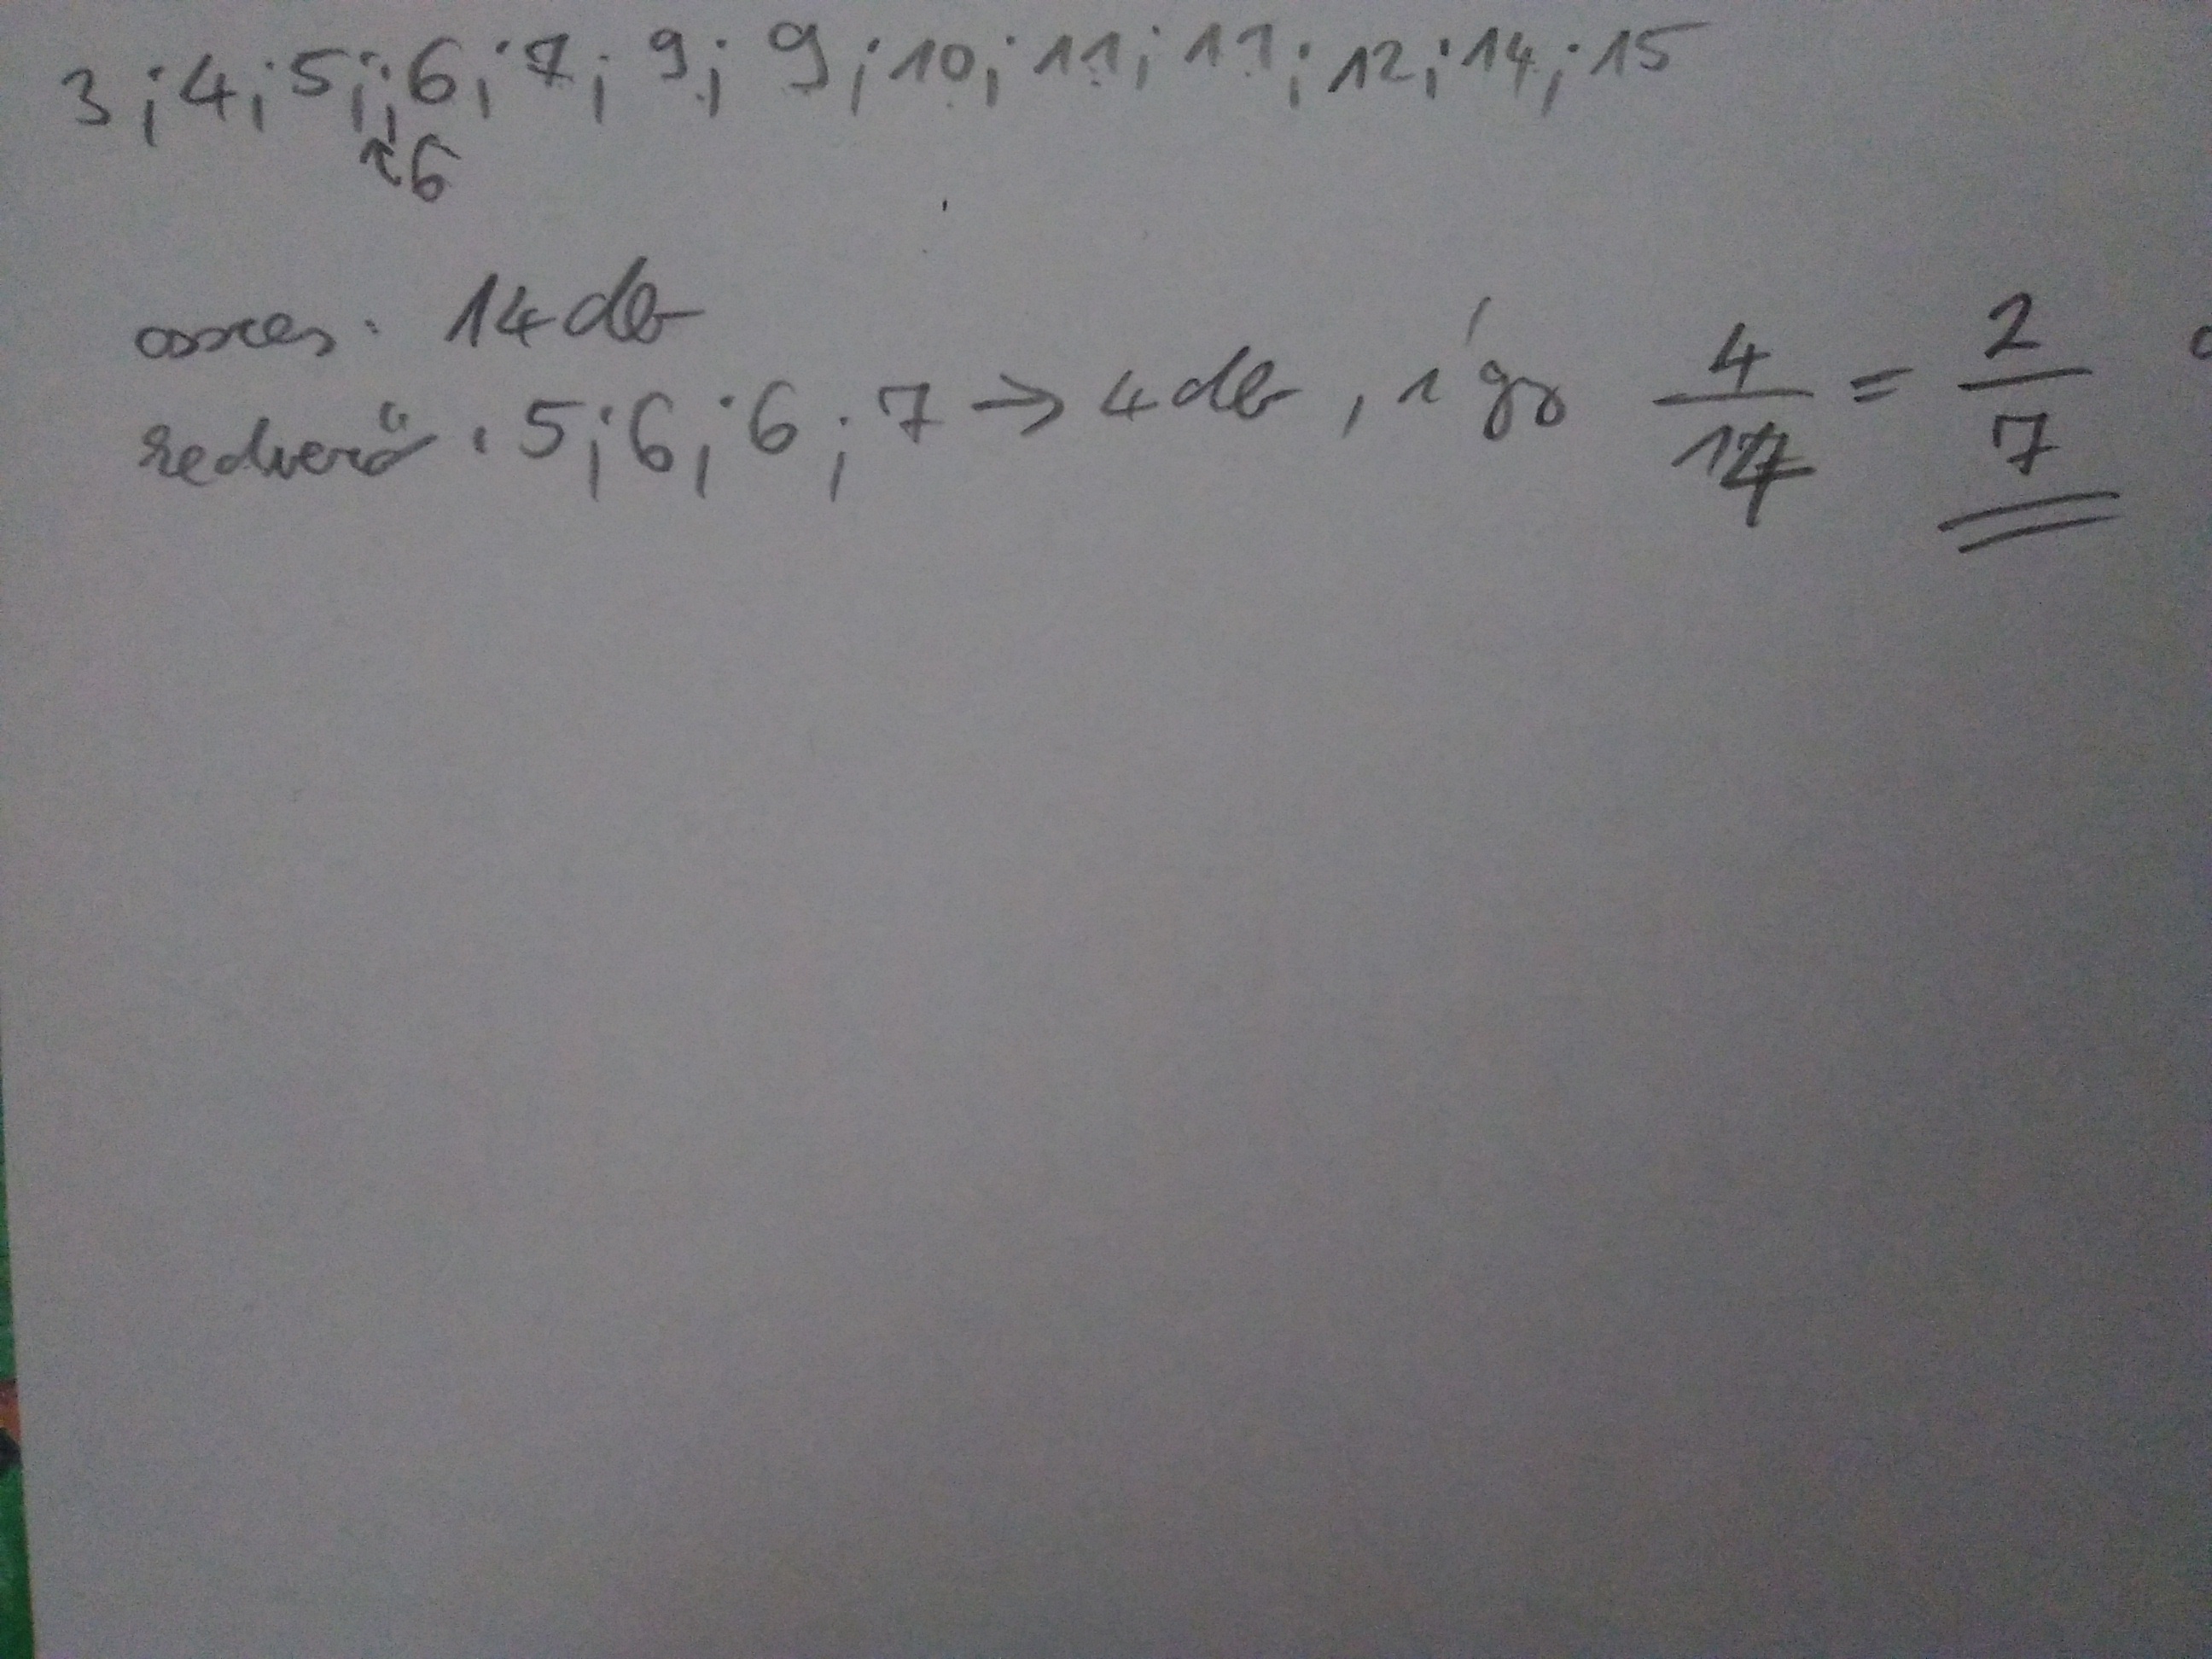 3;4;5;;6;7;9;9;10;11;11;12;14;15
6
összes: 14 db
kedvező: 5;6;6;7 → 4 db, így 4/14 = 2/7